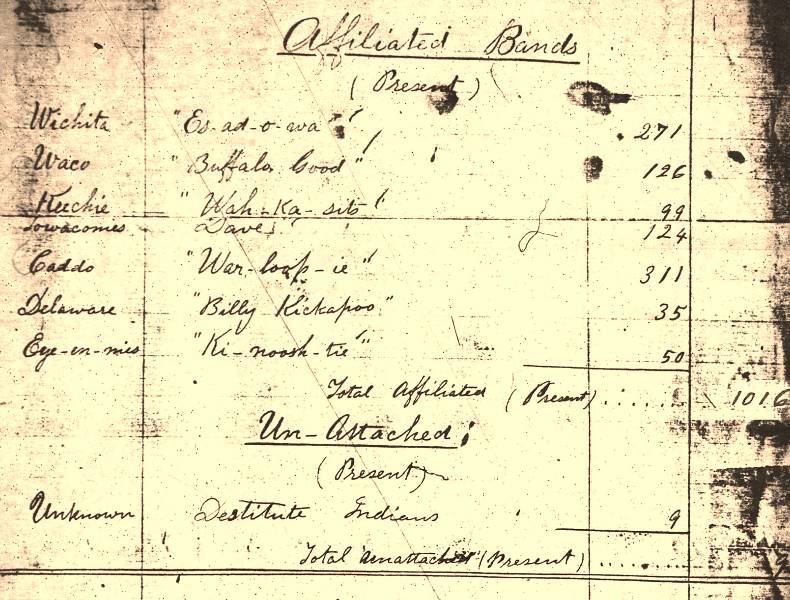 Affiliated Bands
(Present)
Wichita "Es-ad-o-wa" 271
Waco "Buffalo Good" 126
Keechie "Wah-Ka-sits" 99
Towacomes Dave 124
Caddo "War-loop-ie" 311
Delaware "Billy Kickapoo" 35
Eye-en-mies "Ki-noosh-tie" 50
Total Affiliated (Present) ...... 1016
Un-Attached;
(Present)
Unknown Destitute Indians 9
Total Unattached (Present) ...... 9